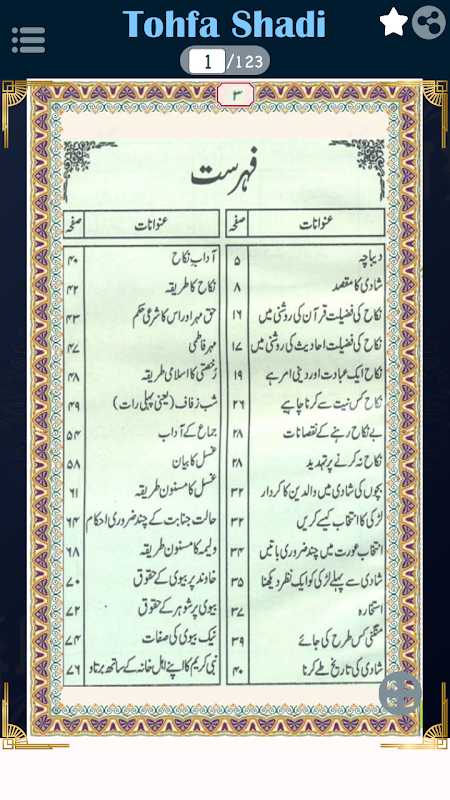 Tohfa Shadi
1/123
۳
فہرست
عنوانات صفحہ
دیباچہ ۵
شادی کا مقصد ۸
نکاح کی فضیلت قرآن کی روشنی میں ۱۶
نکاح کی فضیلت احادیث کی روشنی میں ۱۷
نکاح ایک عبادت اور دینی امر ہے ۱۹
نکاح کس نیت سے کرنا چاہیے ۲۶
بے نکاح رہنے کے نقصانات ۲۸
نکاح نہ کرنے پر تہدید ۲۸
بچوں کی شادی میں والدین کا کردار ۳۲
لڑکی کا انتخاب کیسے کریں ۳۲
انتخاب عورت میں چند ضروری باتیں ۳۴
شادی سے پہلے لڑکی کو ایک نظر دیکھنا ۳۵
استخارہ ۳۷
منگنی کس طرح کی جائے ۳۹
شادی کی تاریخ طے کرنا ۴۰
عنوانات صفحہ
آداب نکاح ۴۰
نکاح کا طریقہ ۴۲
حق مہر اور اس کا شرعی حکم ۴۳
مہر فاطمی ۴۷
رخصتی کا اسلامی طریقہ ۴۸
شب زفاف (یعنی پہلی رات) ۴۹
جماع کے آداب ۵۴
غسل کا بیان ۵۸
غسل کا مسنون طریقہ ۶۱
حالت جنابت کے چند ضروری احکام ۶۴
ولیمہ کا مسنون طریقہ ۶۸
خاوند پر بیوی کے حقوق ۷۰
بیوی پر شوہر کے حقوق ۷۲
نیک بیوی کی صفات ۷۴
نبی کریم کا اپنے اہل خانہ کے ساتھ برتاو ۷۶